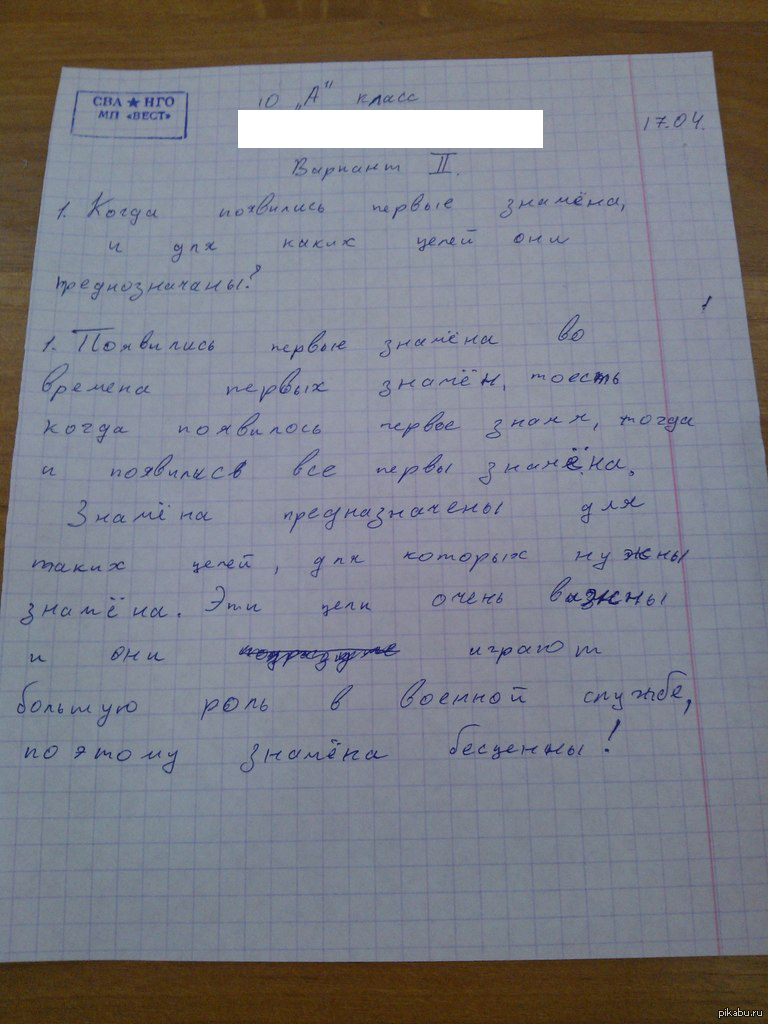 СВА ★ НГО
МП «ВЕСТ»
10 „А" класс
17.04.
Вариант II.
1. Когда появились первые знамёна,
и для каких целей они
преднозначаны?
1. Появились первые знамёна во
времена первых знамён, тоесть
когда появилось первое знамя, тогда
и появились все первы знамёна.
Знамёна предназначены для
таких целей, для которых нужны
знамёна. Эти цели очень важны
и они играют
большую роль в военной службе,
поэтому знамёна бесценны!
pikabu.ru